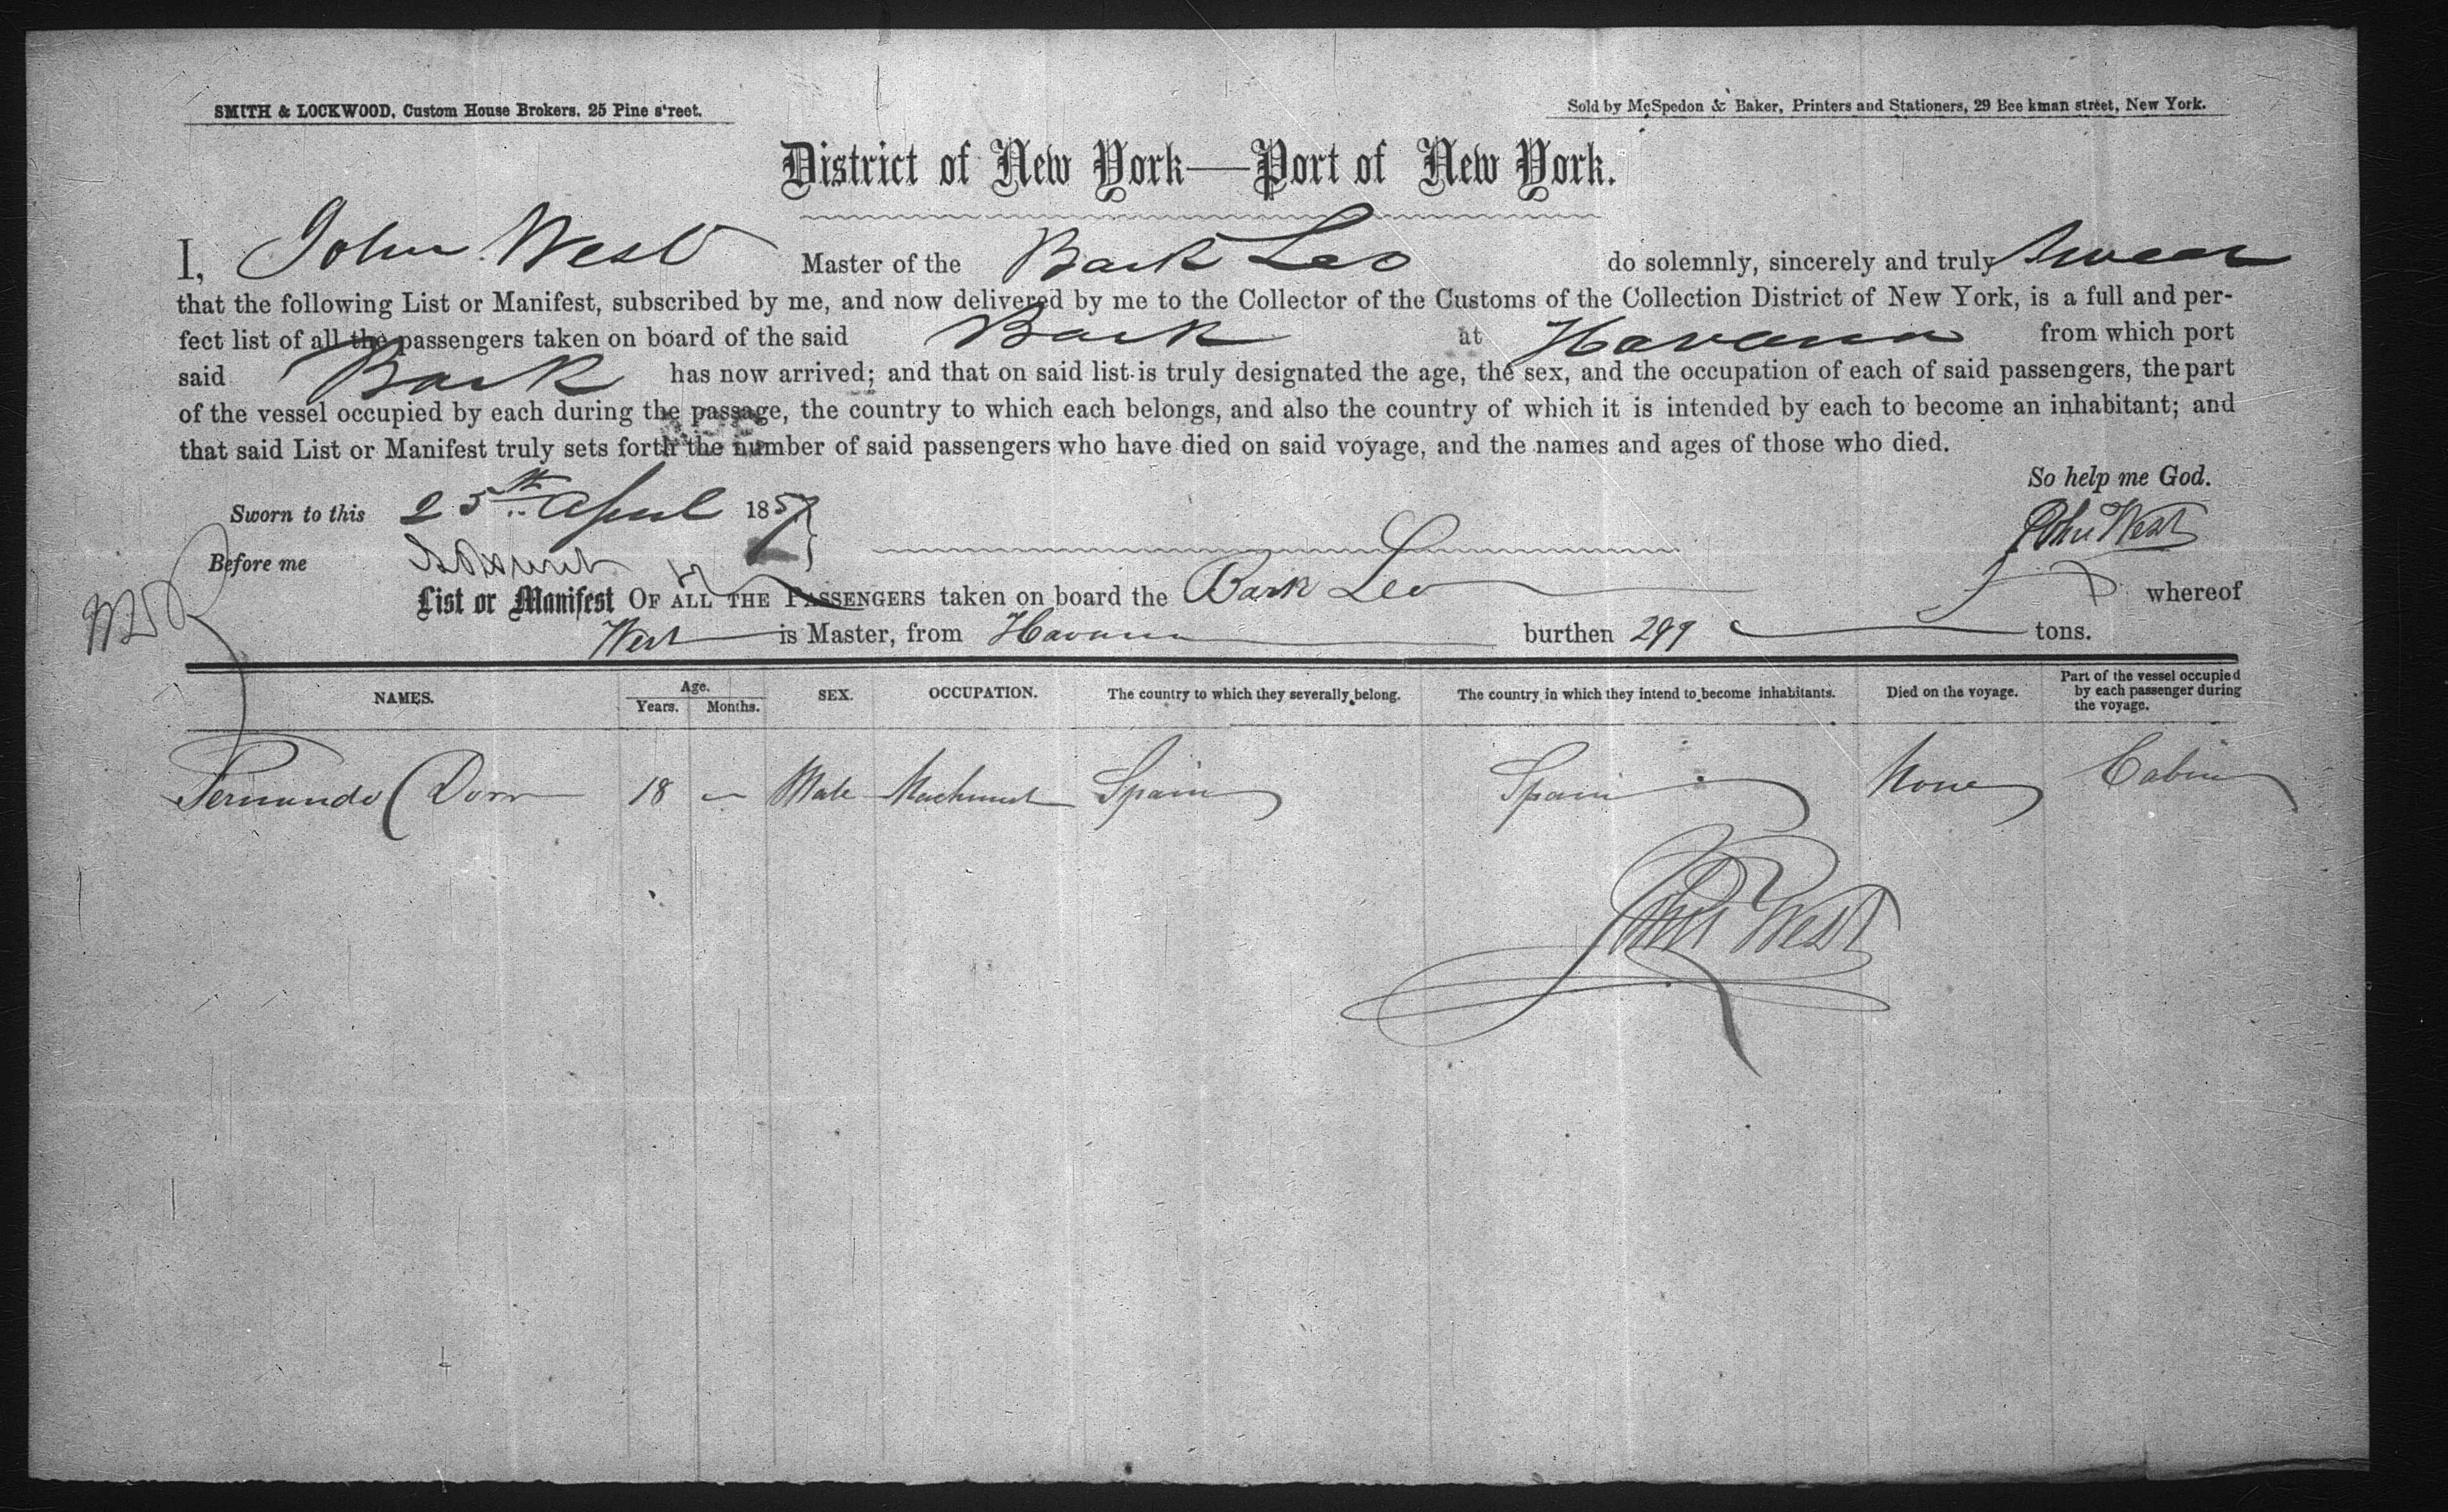 SMITH & LOCKWOOD, Custom House Brokers, 25 Pine street.
Sold by McSpedon & Baker, Printers and Stationers, 29 Beekman street, New York.
District of New York—Port of New York.
I, John West Master of the Bark Leo do solemnly, sincerely and truly Swear
that the following List or Manifest, subscribed by me, and now delivered by me to the Collector of the Customs of the Collection District of New York, is a full and per-
fect list of all the passengers taken on board of the said Bark at Havana from which port
said Bark has now arrived; and that on said list is truly designated the age, the sex, and the occupation of each of said passengers, the part
of the vessel occupied by each during the passage, the country to which each belongs, and also the country of which it is intended by each to become an inhabitant; and
that said List or Manifest truly sets forth the number of said passengers who have died on said voyage, and the names and ages of those who died.
So help me God.
Sworn to this 25th April 1857
John West
Before me
List or Manifest OF ALL THE PASSENGERS taken on board the Bark Leo whereof
West is Master, from Havana burthen 299 tons.
NAMES. Age. Years. Months. SEX. OCCUPATION. The country to which they severally belong. The country in which they intend to become inhabitants. Died on the voyage. Part of the vessel occupied by each passenger during the voyage.
Fernando Dorr 18 — Male Machinist Spain Spain None Cabin
John West